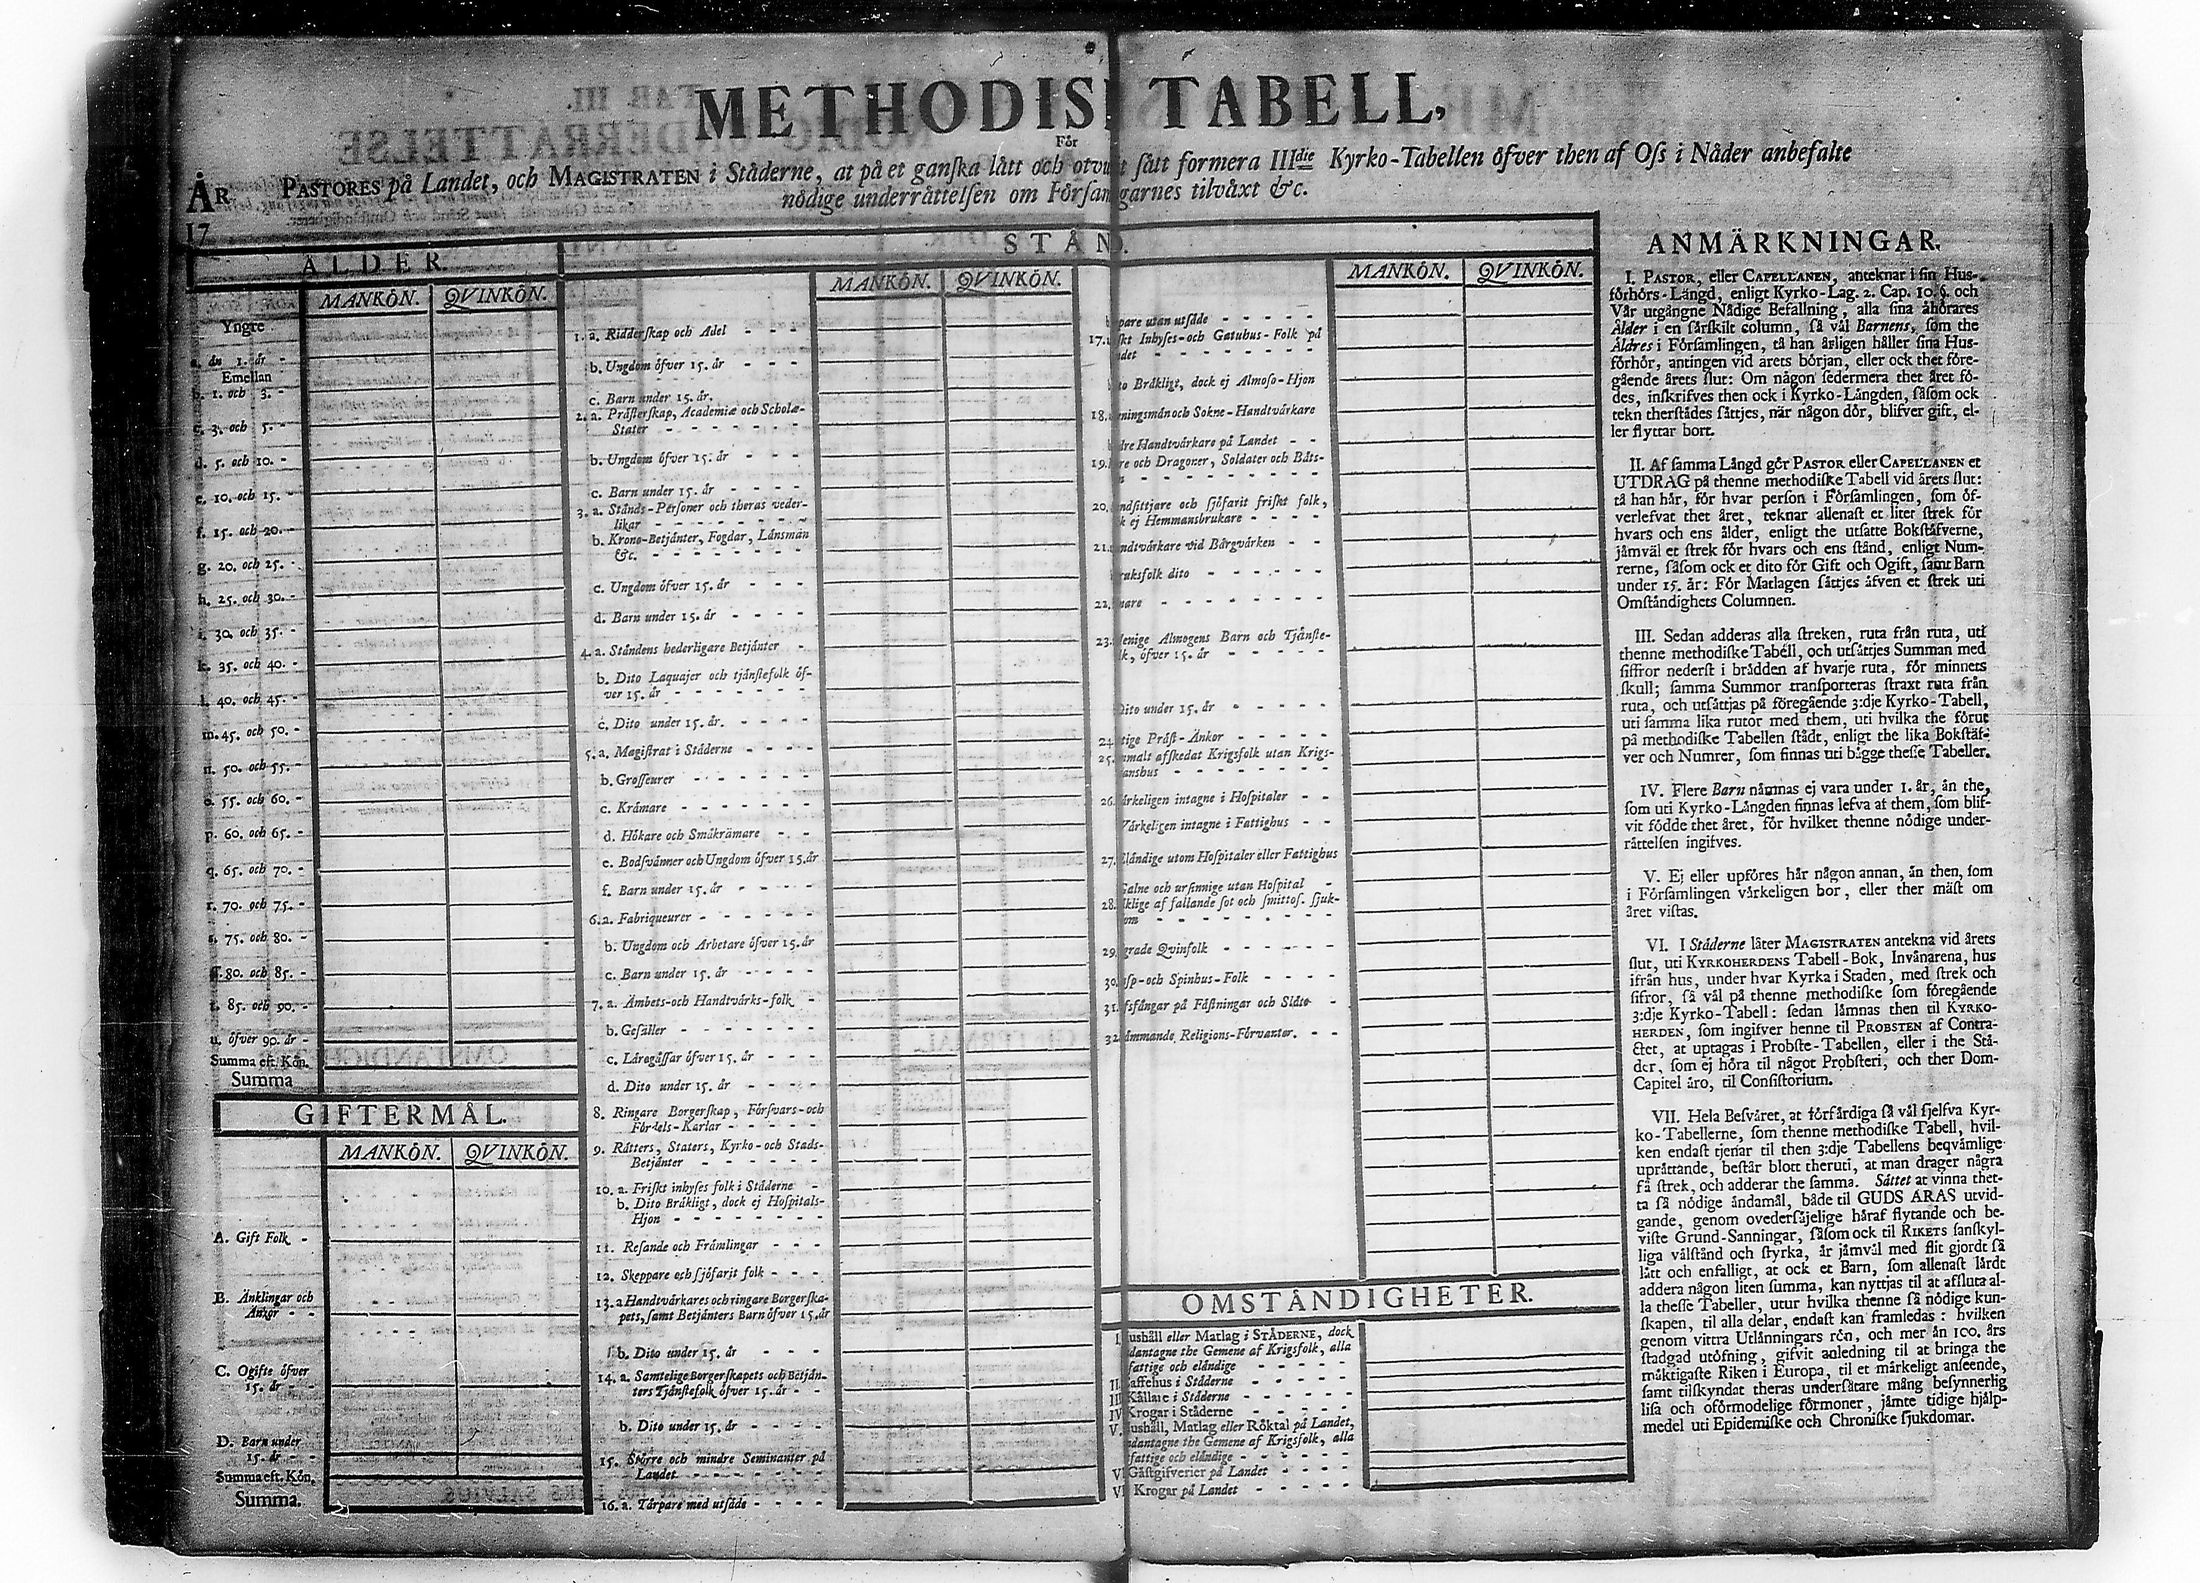 METHODIS TABELL,
För
PASTORES på Landet, och MAGISTRATEN i Ståderne, at på et ganſka lått och otvunt ſått formera IIIdie Kyrko-Tabellen öfver then af Oſs i Nåder anbefalte
nödige underråttelſen om Förſamgarnes tilvåxt &c.
ÅR
17
ÅLDER.
MANKÖN. QVINKÖN.
Yngre
a. ån 1. år -
Emellan
b. 1. och 3. -
c. 3. och 5. -
d. 5. och 10. -
e. 10. och 15. -
f. 15. och 20. -
g. 20. och 25. -
h. 25. och 30. -
i. 30. och 35. -
k. 35. och 40. -
l. 40. och 45. -
m. 45. och 50. -
n. 50. och 55. -
o. 55. och 60. -
p. 60. och 65. -
q. 65. och 70. -
r. 70. och 75. -
s. 75. och 80. -
ſ. 80. och 85. -
t. 85. och 90. -
u. öfver 90. år -
Summa eft. Kön.
Summa
GIFTERMÅL.
MANKÖN. QVINKÖN.
A. Gift Folk -
B. Änklingar och
Änkor - -
C. Ogifte öfver
15. år - -
D. Barn under
15. år - -
Summa eft. Kön,
Summa.
STÅN.
MANKÖN. QVINKÖN.
1. a. Ridderſkap och Adel - - -
b. Ungdom öfver 15. år - - -
c. Barn under 15. år.
2. a. Pråſterſkap, Academiæ och Scholæ-
Stater - - - - - -
b. Ungdom öfver 15. år - - -
c. Barn under 15. år - - - -
3. a. Stånds-Perſoner och theras veder-
likar - - - - - - -
b. Krono-Betjånter, Fogdar, Lånsmån
&c. - - - - - - -
c. Ungdom öfver 15. år - - -
d. Barn under 15. år - - - -
4. a. Ståndens hederligare Betjånter -
b. Dito Laquajer och tjånſtefolk öf-
ver 15. år - - - - - -
c. Dito under 15. år. - - - -
5. a. Magiſtrat i Ståderne - - - -
b. Groſſeurer - - - - - -
c. Kråmare - - - - - -
d. Hökare och Småkråmare - - -
e. Bodſvånner och Ungdom öfver 15. år
f. Barn under 15. år - - - -
6. a. Fabriqueurer - - - - - -
b. Ungdom och Arbetare öfver 15. år
c. Barn under 15. år - - - -
7. a. Åmbets-och Handtvårks-folk -
b. Geſåller - - - - - - -
c. Lårogåſſar öfver 15. år - - -
d. Dito under 15. år - - - -
8. Ringare Borgerſkap, Förſvars-och
Fördels-Karlar - - - - -
9. Råtters, Staters, Kyrko-och Stads-
Betjånter - - - - - -
10. a. Friſkt inhyſes folk i Ståderne -
b. Dito Bråkligt, dock ej Hoſpitals-
Hjon - - - - - - -
11. Reſande och Fråmlingar - - -
12. Skeppare och ſjöfarit folk - - -
13. a Handtvårkares och ringare Borgerſka-
pets, ſamt Betjånters Barn öfver 15. år
b. Dito under 15. år - - -
14. a. Samtelige Borgerſkapets och Betjån-
ters Tjånſtefolk öfver 15. år - -
b. Dito under 15. år - - - -
15. Större och mindre Seminanter på
Landet - - - - - - -
16. a. Tårpare med utſåde - - - -
MANKÖN. QVINKÖN.
pare utan utſåde - - - - -
17. ſkt Inhyſes-och Gatuhus-Folk på
det - - - - - - -
to Bråkligt, dock ej Almoſo-Hjon
18. ningsmån och Sokne-Handtvårkare
dre Handtvårkare på Landet - -
19. re och Dragoner, Soldater och Båts-
20. ndſittjare och ſjöfarit friſkt folk,
k ej Hemmansbrukare - - - -
21. ndtvårkare vid Bårgvårken - -
ruksfolk dito - - - - - -
22. nare - - - - - - - -
23. enige Almogens Barn och Tjånſte-
lk, öfver 15. år - - - - -
Dito under 15. år - - - - -
24. tige Pråſt-Änkor - - - - -
25. mmalt afſkedat Krigsfolk utan Krigs-
anshus - - - - - - -
26. årkeligen intagne i Hoſpitaler - -
Vårkeligen intagne i Fattighus - -
27. Elåndige utom Hoſpitaler eller Fattighus
Galne och urſinnige utan Hoſpital -
28. åklige af fallande ſot och ſmittoſ. ſjuk-
om - - - - - - - -
29. grade Qvinfolk - - - - -
30. aſp-och Spinhus-Folk - - - -
31. fsfångar på Fåſtningar och Slått -
32. åmmande Religions-Förvanter. - -
OMSTÅNDIGHETER.
I. ushåll eller Matlag i STÅDERNE, dock
dantagne the Gemene af Krigsfolk, alla
fattige och elåndige - - - - -
II affehus i Ståderne - - - - -
III Kållare i Ståderne - - - - -
IV Krogar i Ståderne - - - - -
V. ushåll, Matlag eller Röktal på Landet,
ndantagne the Gemene af Krigsfolk, alla
fattige och elåndige - - - - -
VI Gåſtgifverier på Landet - - - -
VI Krogar på Landet - - - - -
ANMÄRKNINGAR.
I. PASTOR, eller CAPELLANEN, anteknar i ſin Hus-
förhörs-Långd, enligt Kyrko-Lag. 2. Cap. 10. §. och
Vår utgångne Nådige Befallning, alla ſina åhörares
Ålder i en ſårſkilt column, ſå vål Barnens, ſom the
Åldres i Förſamlingen, tå han årligen håller ſina Hus-
förhör, antingen vid årets början, eller ock thet före-
gående årets ſlut: Om någon ſedermera thet året fö-
des, inſkrifves then ock i Kyrko-Långden, ſåſom ock
tekn therſtådes ſåttjes, når någon dör, blifver gift, el-
ler flyttar bort.
II. Af ſamma Långd gör PASTOR eller CAPELLANEN et
UTDRAG på thenne methodiſke Tabell vid årets ſlut:
tå han hår, för hvar perſon i Förſamlingen, ſom öf-
verlefvat thet året, teknar allenaſt et litet ſtrek för
hvars och ens ålder, enligt the utſatte Bokſtåfverne,
jåmvål et ſtrek för hvars och ens ſtånd, enligt Num-
rerne, ſåſom ock et dito för Gift och Ogift, ſamt Barn
under 15. år: För Matlagen ſåttjes åfven et ſtrek uti
Omſtåndighets Columnen.
III. Sedan adderas alla ſtreken, ruta från ruta, uti
thenne methodiſke Tabell, och utſåttjes Summan med
ſiffror nederſt i brådden af hvarje ruta, för minnets
ſkull; ſamma Summor tranſporteras ſtraxt ruta från
ruta, och utſåttjas på föregående 3:dje Kyrko-Tabell,
uti ſamma lika rutor med them, uti hvilka the förut
på methodiſke Tabellen ſtådt, enligt the lika Bokſtåf-
ver och Numrer, ſom finnas uti bågge theſſe Tabeller.
IV. Flere Barn nåmnas ej vara under 1. år, ån the,
ſom uti Kyrko-Långden finnas lefva af them, ſom blif-
vit födde thet året, för hvilket thenne nödige under-
råttelſen ingifves.
V. Ej eller upföres hår någon annan, ån then, ſom
i Förſamlingen vårkeligen bor, eller ther måſt om
året viſtas.
VI. I Ståderne låter MAGISTRATEN antekna vid årets
ſlut, uti KYRKOHERDENS Tabell-Bok, Invånarena, hus
ifrån hus, under hvar Kyrka i Staden, med ſtrek och
ſifror, ſå vål på thenne methodiſke ſom föregående
3:dje Kyrko-Tabell: ſedan låmnas then til KYRKO-
HERDEN, ſom ingifver henne til PROBSTEN af Contra-
ctet, at uptagas i Probſte-Tabellen, eller i the Stå-
der, ſom ej höra til något Probſteri, och ther Dom-
Capitel åro, til Conſiſtorium.
VII. Hela Beſvåret, at förfårdiga ſå vål ſjelfva Kyr-
ko-Tabellerne, ſom thenne methodiſke Tabell, hvil-
ken endaſt tjenar til then 3:dje Tabellens beqvåmlige
upråttande, beſtår blott theruti, at man drager några
få ſtrek, och adderar the ſamma. Såttet at vinna thet-
ta ſå nödige åndamål, både til GUDS ÅRAS utvid-
gande, genom ovederſåjelige håraf flytande och be-
viſte Grund-Sanningar, ſåſom ock til RIKETS ſanſkyl-
liga vålſtånd och ſtyrka, år jåmvål med flit gjordt ſå
lått och enfalligt, at ock et Barn, ſom allenaſt lårdt
addera någon liten ſumma, kan nyttjas til at afſluta al-
la theſſe Tabeller, utur hvilka thenne ſå nödige kun-
ſkapen, til alla delar, endaſt kan framledas: hvilken
genom vittra Utlånningars rön, och mer ån 100. års
ſtadgad utöfning, gifvit anledning til at bringa the
måktigaſte Riken i Europa, til et mårkeligt anſeende,
ſamt tilſkyndat theras underſåtare mång beſynnerlig
liſa och oförmodelige förmoner, jåmte tidige hjålp-
medel uti Epidemiſke och Chroniſke ſjukdomar.